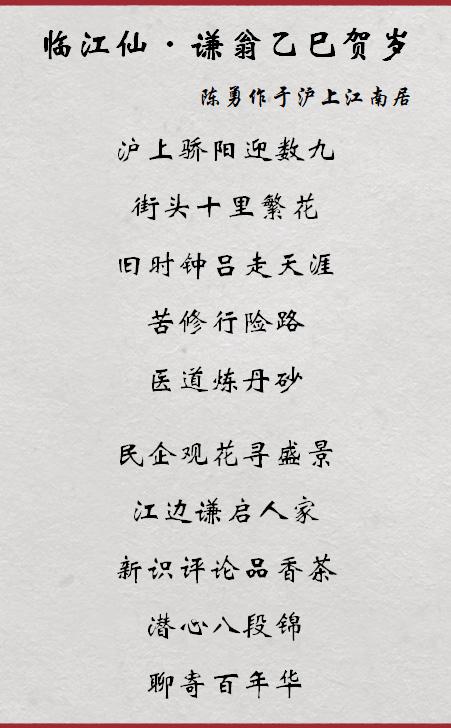 临江仙·谦翁乙巳贺岁
陈勇作于沪上江南居
沪上骄阳迎数九
街头十里繁花
旧时钟吕走天涯
苦修行险路
医道炼丹砂
民企观花寻盛景
江边谦启人家
新识评论品香茶
潜心八段锦
聊寄百年华